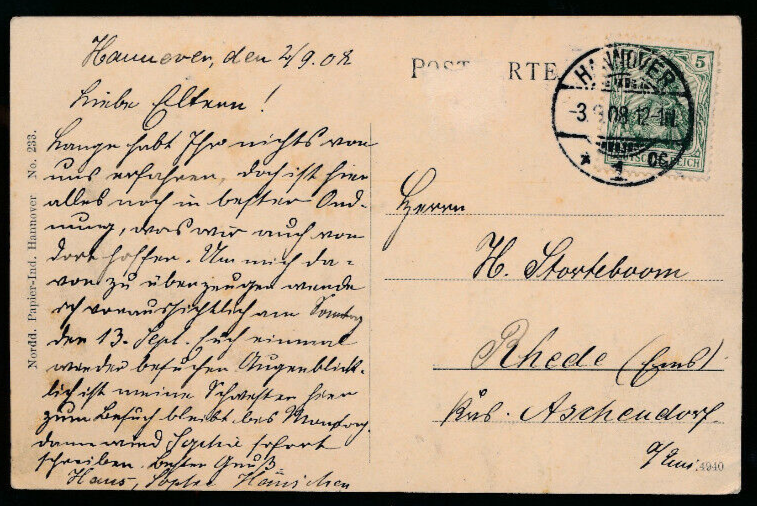 Hannover, den 2/9.08
Liebe Eltern!
Lange habt Ihr nichts von
uns erfahren, doch ist hier
alles noch in bester Ord-
nung, was wir auch von
dort hoffen. Um mich da-
von zu überzeugen werde
ich voraussichtlich am Sonntag
den 13. Sept. Euch einmal
wieder besuchen. Augenblick-
lich ist meine Schwester hier
zum Besuch bleibt bis Montag,
dann wird Sophie sofort
schreiben. Besten Gruß
Hans, Sophie Hänschen
Nordd. Papier-Ind. Hannover No. 233.
POST RTE
HANNOVER
-3.9.08.12-1N
* 1
5
REICH
Herrn
H. Storteboom
Rhede (Ems)
Krs. Aschendorf
a/Ems
4940